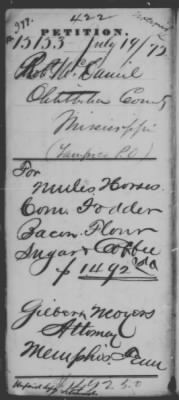 422
No 377.
PETITION.
15153 July 19/72
Rob McDaniel
Oktibbeha County
Mississippi
(Tampico P.O.)
For
Mules. Horses.
Corn. Fodder
Bacon. Flour
Sugar & Coffee
$1492 50/100
Gilbert Moyers
Attorney
Memphis. Tenn
1492.50